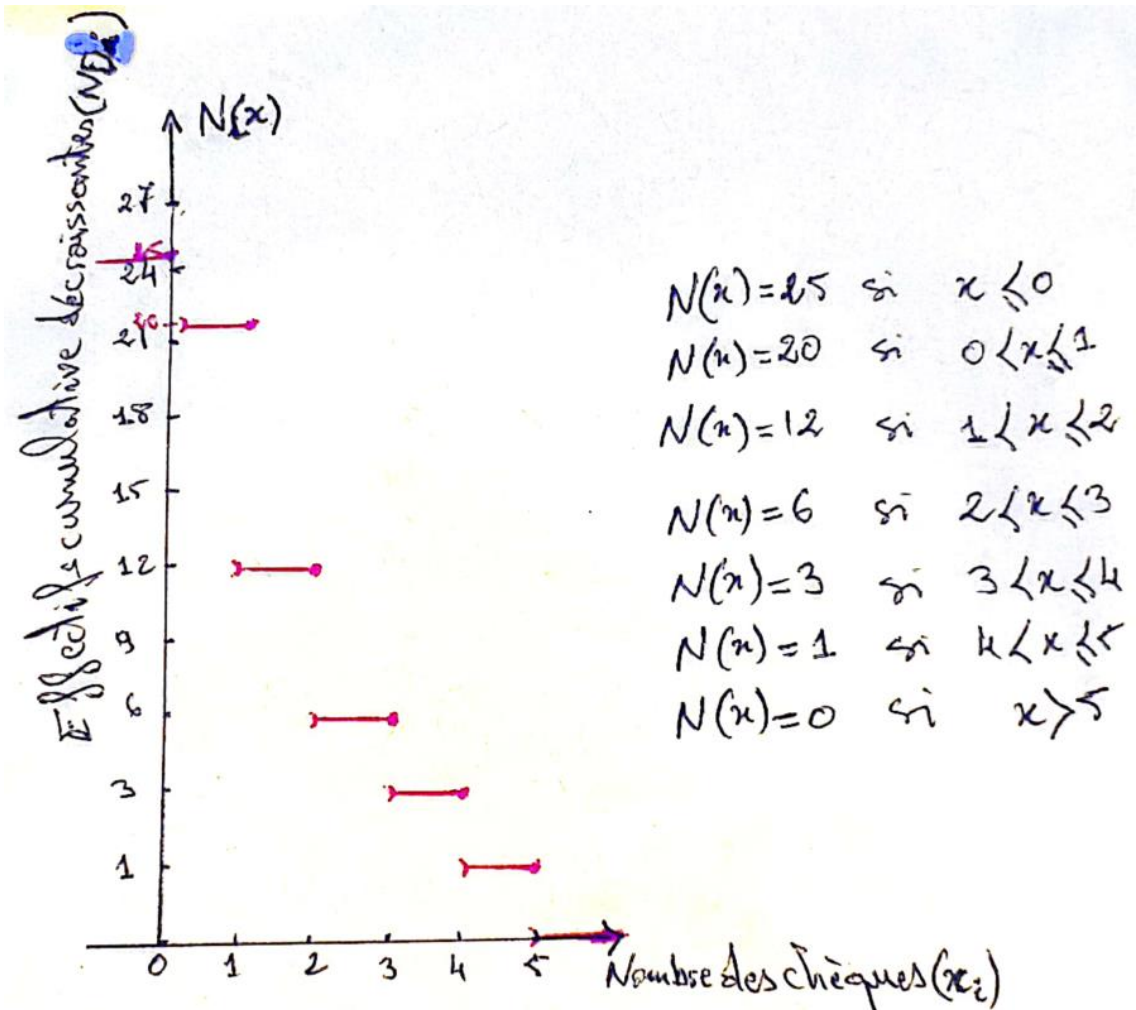 Effectifs cumulative décroissantes (ND)
N(x)
27
25
24
20
21
18
15
12
9
6
3
1
0 1 2 3 4 5
Nombre des chèques (xi)
N(x)=25 si x≤0
N(x)=20 si 0<x≤1
N(x)=12 si 1<x≤2
N(x)=6 si 2<x≤3
N(x)=3 si 3<x≤4
N(x)=1 si 4<x≤5
N(x)=0 si x>5